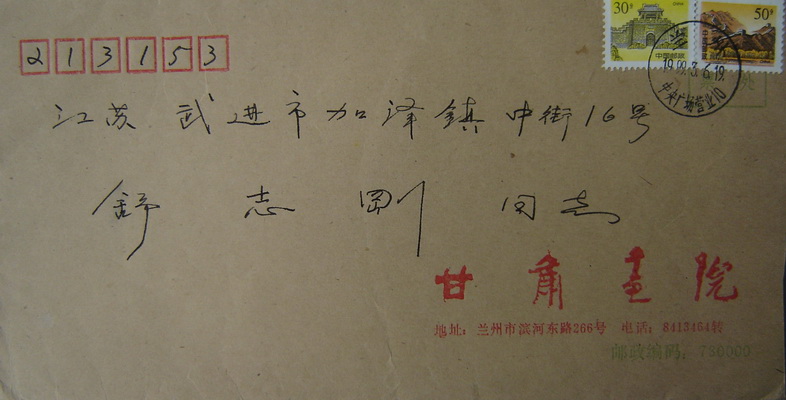 213153
30分
50分
中国邮政
1999.3.6.19
中央广场营业10
江苏 武进市加泽镇中街16号
舒志刚 同志
甘肃画院
地址：兰州市滨河东路266号 电话：8413464转
邮政编码：730000